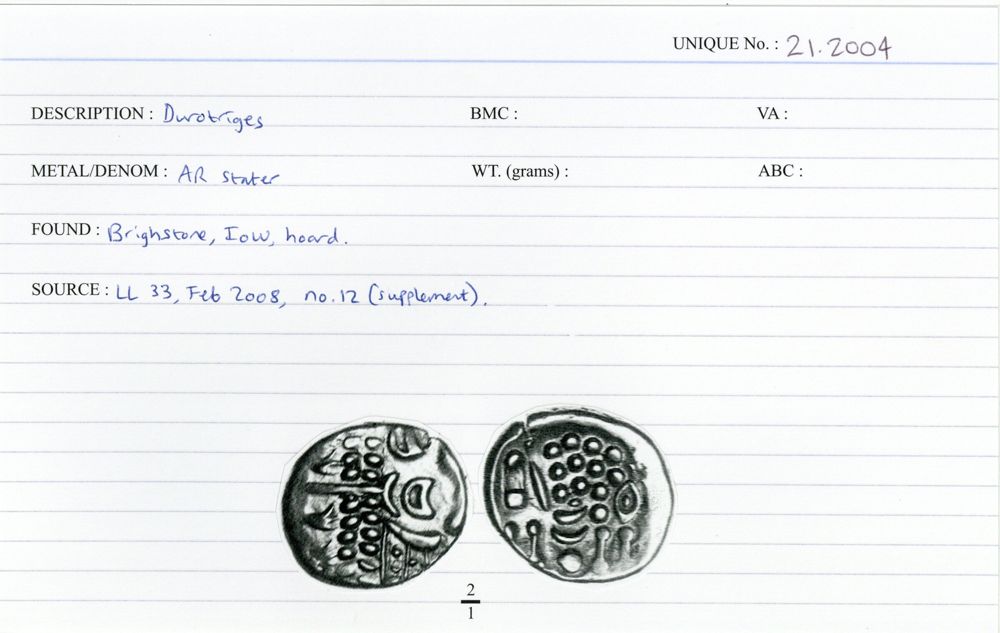 UNIQUE No. : 21.2004
DESCRIPTION : Durotriges BMC : VA :
METAL/DENOM : AR stater WT. (grams) : ABC :
FOUND : Brighstone, IoW, hoard.
SOURCE : LL 33, Feb 2008, no.12 (supplement).
2
1